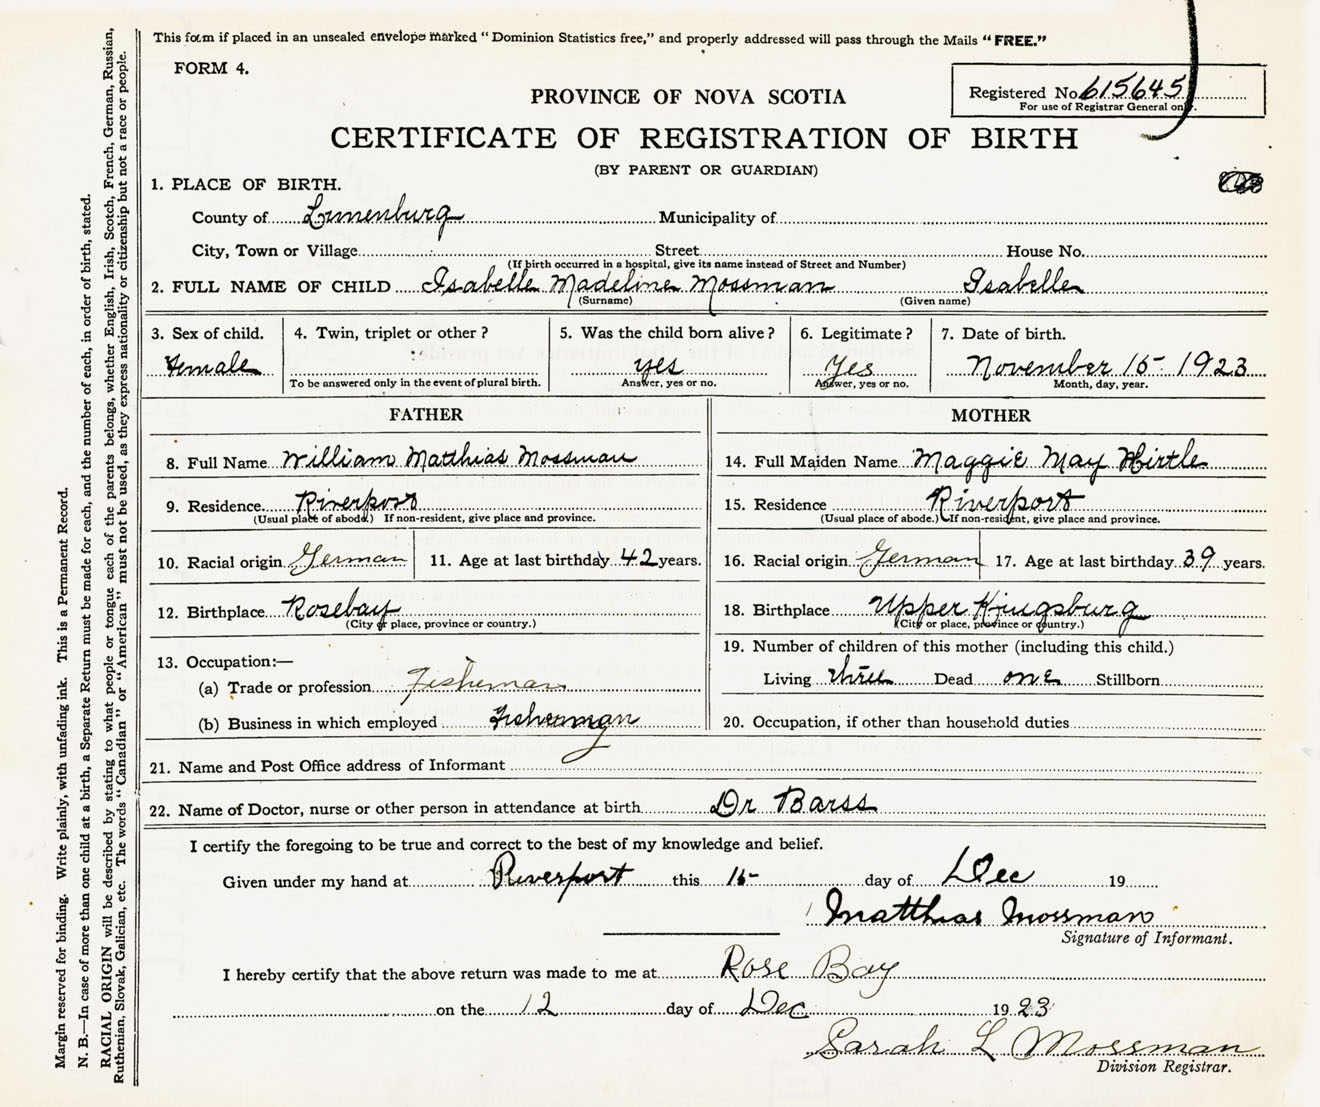 This form if placed in an unsealed envelope marked "Dominion Statistics free," and properly addressed will pass through the Mails "FREE."
FORM 4.
Registered No. 615645
For use of Registrar General only.
PROVINCE OF NOVA SCOTIA
CERTIFICATE OF REGISTRATION OF BIRTH
(BY PARENT OR GUARDIAN)
1. PLACE OF BIRTH.
County of Lunenburg Municipality of
City, Town or Village Street House No.
(If birth occurred in a hospital, give its name instead of Street and Number)
2. FULL NAME OF CHILD Isabelle Madeline Mossman Isabelle
(Surname) (Given name)
3. Sex of child. 4. Twin, triplet or other? 5. Was the child born alive? 6. Legitimate? 7. Date of birth.
Female yes Yes November 15 1923
To be answered only in the event of plural birth. Answer, yes or no. Answer, yes or no. Month, day, year.
FATHER
8. Full Name William Matthias Mossman
9. Residence Riverport
(Usual place of abode.) If non-resident, give place and province.
10. Racial origin German 11. Age at last birthday 42 years.
12. Birthplace Rosebay
(City or place, province or country.)
13. Occupation:—
(a) Trade or profession Fisherman
(b) Business in which employed Fisherman
MOTHER
14. Full Maiden Name Maggie May Hirtle
15. Residence Riverport
(Usual place of abode.) If non-resident, give place and province.
16. Racial origin German 17. Age at last birthday 39 years.
18. Birthplace Upper Kingsburg
(City or place, province or country.)
19. Number of children of this mother (including this child.)
Living three Dead one Stillborn
20. Occupation, if other than household duties
21. Name and Post Office address of Informant
22. Name of Doctor, nurse or other person in attendance at birth Dr Barss
I certify the foregoing to be true and correct to the best of my knowledge and belief.
Given under my hand at Riverport this 15 day of Dec 19
Matthias Mossman
Signature of Informant.
I hereby certify that the above return was made to me at Rose Bay
on the 12 day of Dec 1923
Sarah L Mossman
Division Registrar.
Margin reserved for binding. Write plainly, with unfading ink. This is a Permanent Record.
N. B.—In case of more than one child at a birth, a Separate Return must be made for each, and the number of each, in order of birth, stated.
RACIAL ORIGIN will be described by stating to what people or tongue each of the parents belongs, whether English, Irish, Scotch, French, German, Russian,
Ruthenian, Slovak, Galician, etc. The words "Canadian" or "American" must not be used, as they express nationality or citizenship but not a race or people.